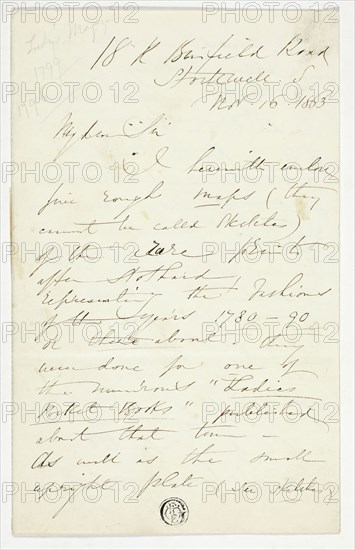 Ladys Mag
179
179
18 K Binfield Road
Stockwell. S
Nov 16 1863
My dear Sir
I herewith enclose
five rough maps (they
cannot be called Sketches)
of the rare prints
after Stothard
representing the Fashions
of the years 1780 - 90
or there about. They
were done for one of
the numerous "Ladies
Pocket Books" published
about that time -
As well as the small
upright plate (see Sketch